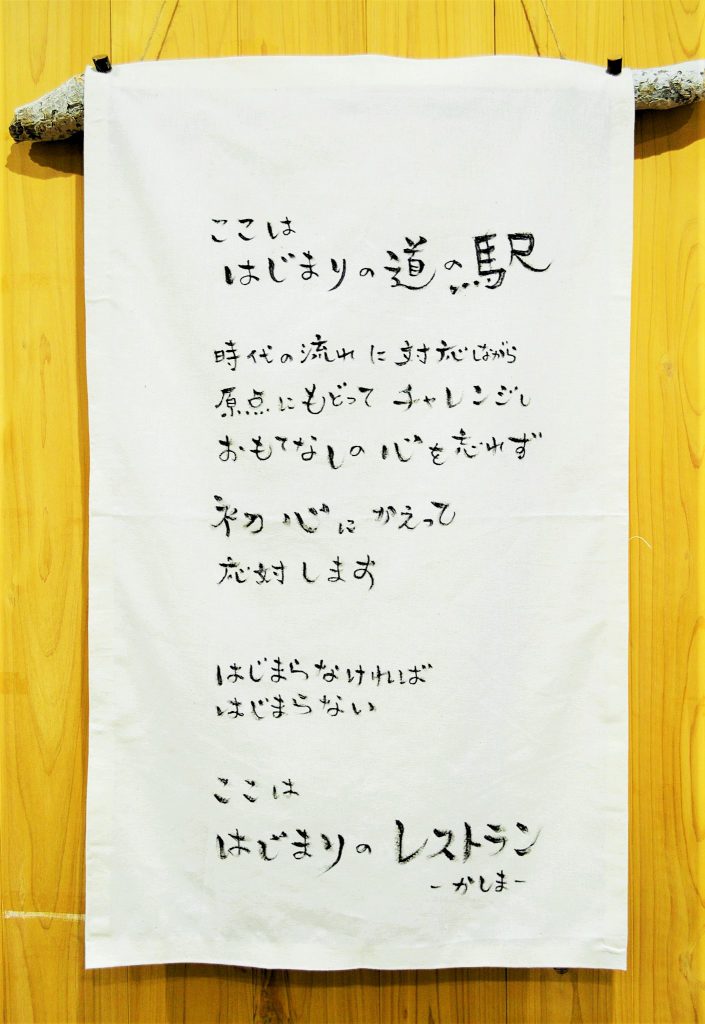 ここは
はじまりの道の駅
時代の流れに対応しながら
原点にもどってチャレンジし
おもてなしの心を忘れず
初心にかえって
応対します
はじまらなければ
はじまらない
ここは
はじまりのレストラン
-かしま-